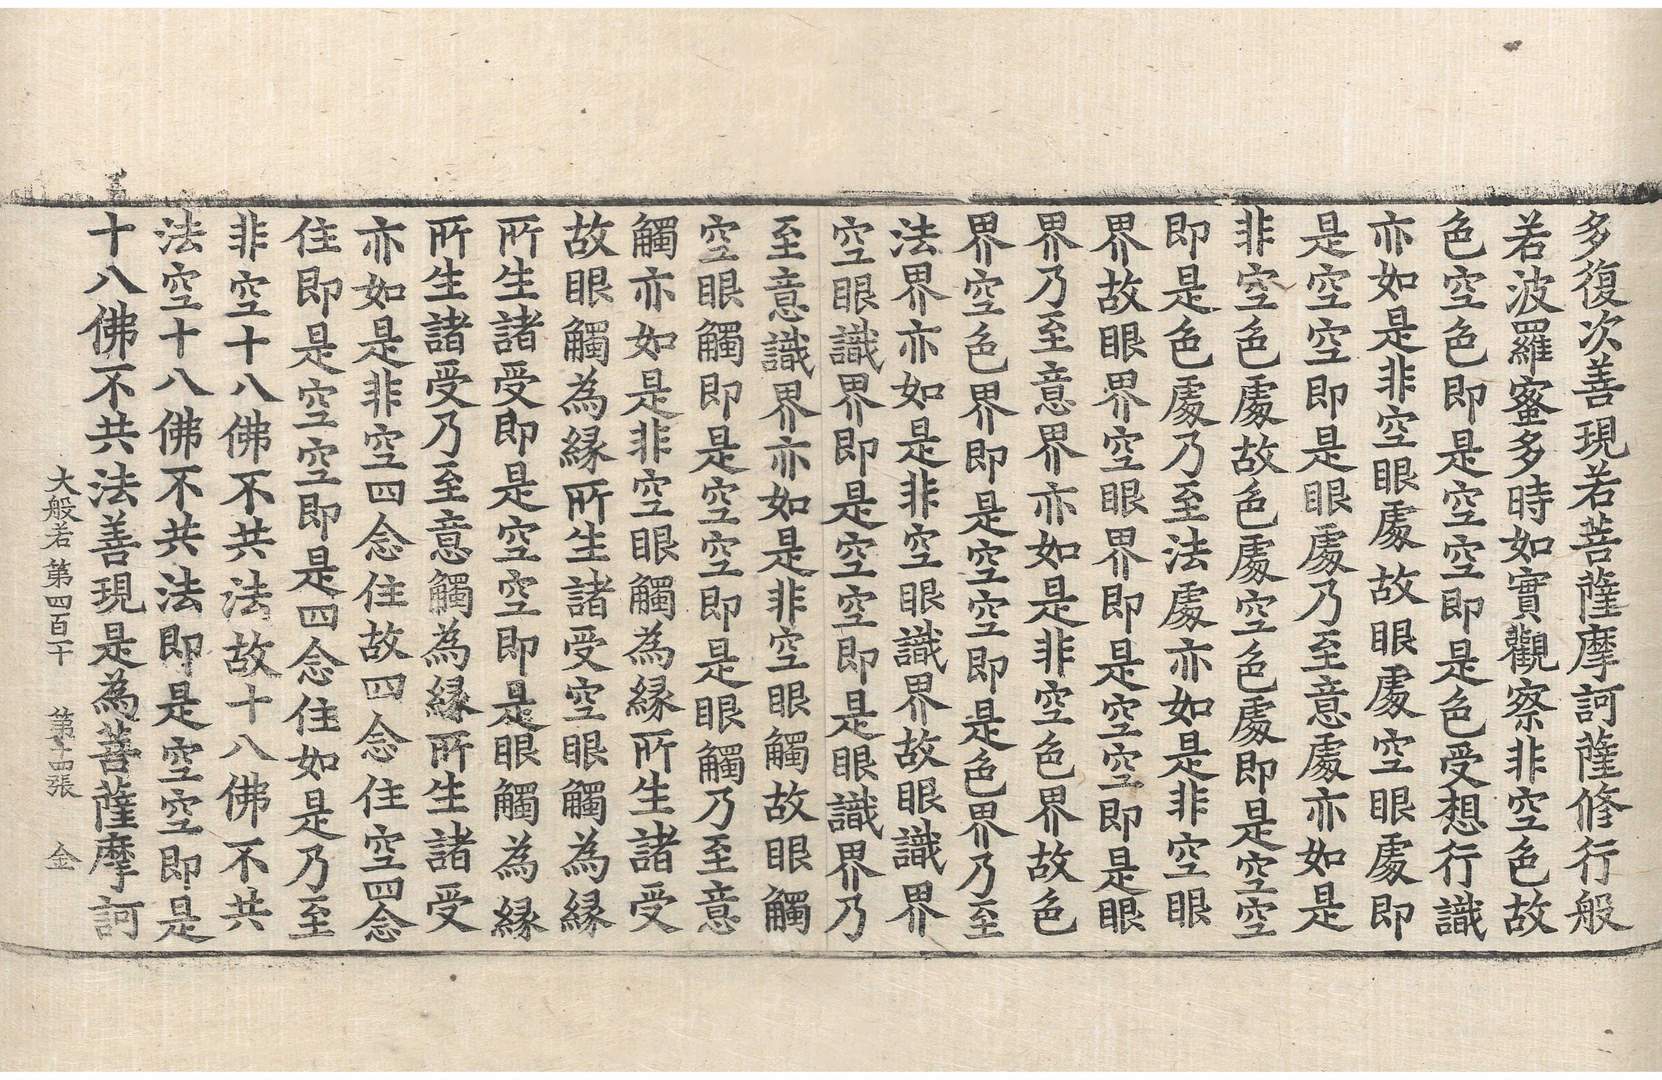 多復次善現若菩薩摩訶薩修行般
若波羅蜜多時如實觀察非空色故
色空色即是空空即是色受想行識
亦如是非空眼處故眼處空眼處即
是空空即是眼處乃至意處亦如是
非空色處故色處空色處即是空空
即是色處乃至法處亦如是非空眼
界故眼界空眼界即是空空即是眼
界乃至意界亦如是非空色界故色
界空色界即是空空即是色界乃至
法界亦如是非空眼識界故眼識界
空眼識界即是空空即是眼識界乃
至意識界亦如是非空眼觸故眼觸
空眼觸即是空空即是眼觸乃至意
觸亦如是非空眼觸為緣所生諸受
故眼觸為緣所生諸受空眼觸為緣
所生諸受即是空空即是眼觸為緣
所生諸受乃至意觸為緣所生諸受
亦如是非空四念住故四念住空四念
住即是空空即是四念住如是乃至
非空十八佛不共法故十八佛不共
法空十八佛不共法即是空空即是
十八佛不共法善現是為菩薩摩訶
大般若第四百 第十四張 金